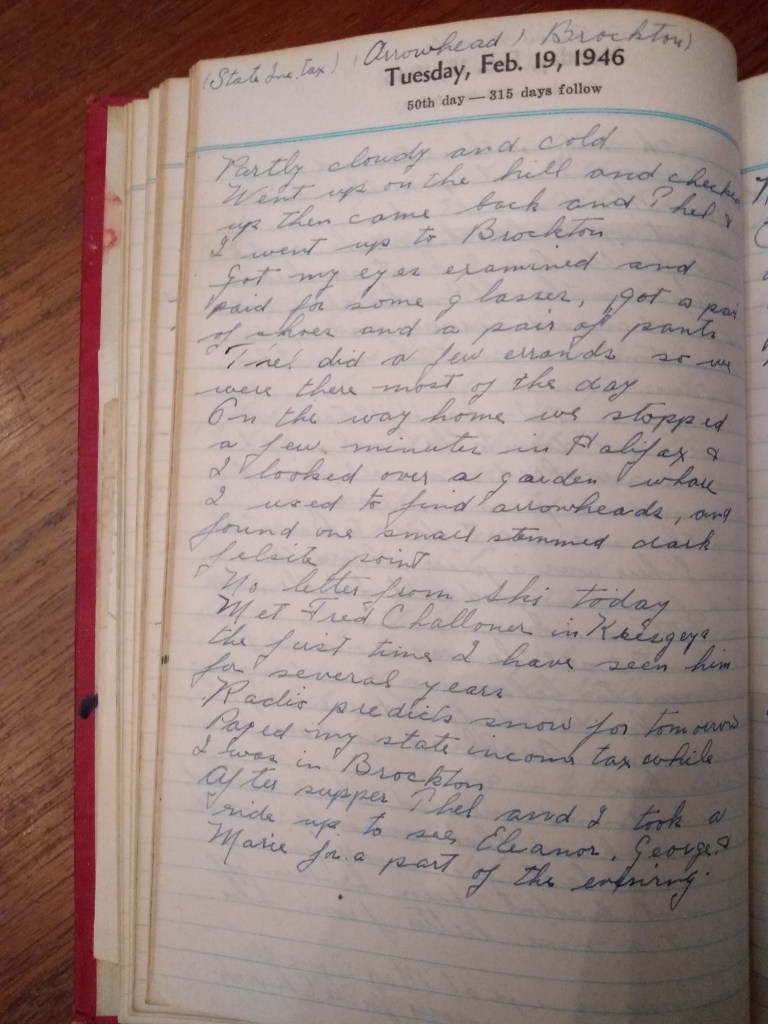 (State Inc. tax) (Arrowhead) Brockton)
Tuesday, Feb. 19, 1946
50th day — 315 days follow
Partly cloudy and cold
Went up on the hill and checked
up then came back and Phel &
I went up to Brockton
Got my eyes examined and
paid for some glasses, got a pair
of shoes and a pair of pants
Phel did a few errands so we
were there most of the day
On the way home we stopped
a few minutes in Halifax &
I looked over a garden whare
I used to find arrowheads, and
found one small stemmed dark
felsite point
No letter from Ski today
Met Fred Challoner in Kresgeys
the first time I have seen him
for several years
Radio predicts snow for tomorrow
Payed my state income tax while
I was in Brockton
After supper Phel and I took a
ride up to see Eleanor, George &
Marie for a part of the evening.